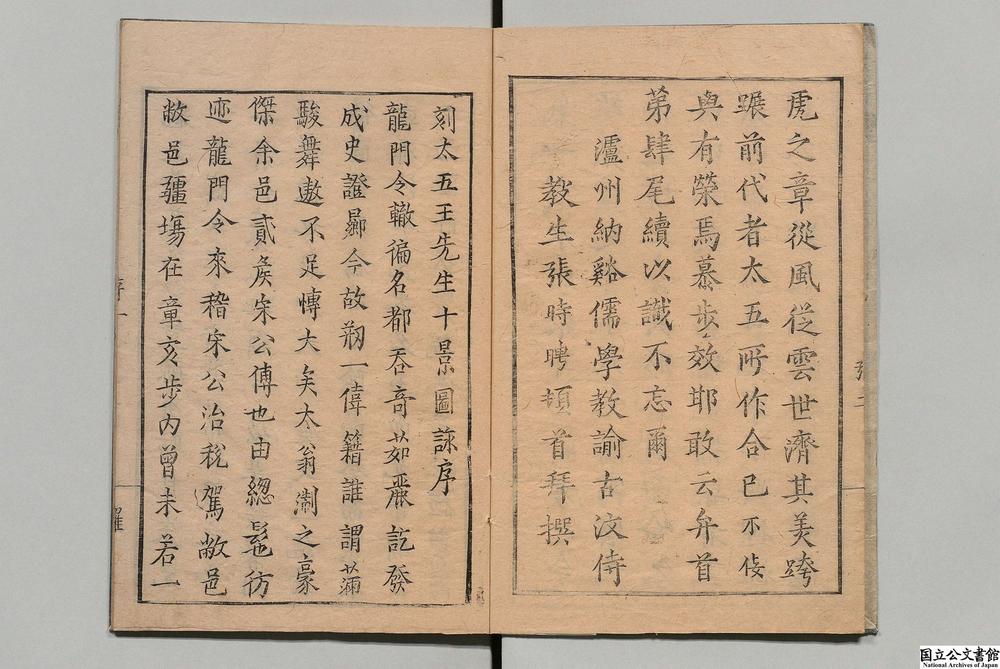 虎之章從風從雲世濟其美跨
蹍前代者太五所作合已不佞
與有榮焉慕步效耶敢云弁首
苐肆尾續以識不忘爾
瀘州納谿儒學教諭古汶侍
教生張時聘頓首拜撰
刻太五王先生十景圖詠序
龍門令轍徧名都吞奇茹麗訖發
成史證曏今故刱一偉籍誰謂
駿舞遨不足慱大矣太翁淛之豪
傑余邑貳矦宋公傅也由緫髢彷
迹龍門令來稽宋公治稅駕敝邑
敝邑疆場在章亥步內曾未若一
序一
国立公文書館
National Archives of Japan